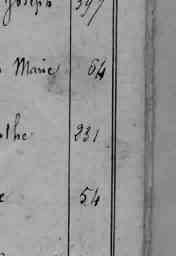 Joseph 397
Marie 64
the 231
e 54